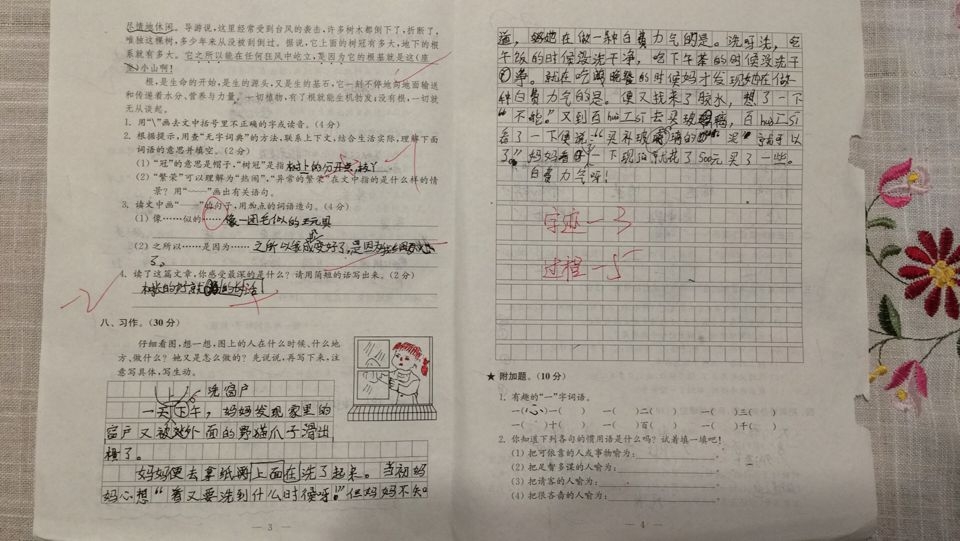 尽情地休闲。导游说，这里经常受到台风的袭击，许多树木都倒下了，折断了，
唯独这棵树，多少年来从没被刮倒过。据说，它上面的树冠有多大，地下的根
系就有多大。它之所以能在任何狂风中屹立，是因为它的根基就是这(座
至)小山啊！
根，是生命的开始，是生的源头，又是生的基石，它一刻不停地匍匐地面输送
和传递着水分、营养与力量。一切植物，有了根就能生机勃发；没有根，一切就
无从谈起。
1. 用“\”画去文中括号里不正确的字或音节。(4分)
2. 根据提示，用查“无字词典”的方法，联系上下文，结合生活实际，理解下面
词语的意思并填空。(2分)
(1) “冠”的意思是帽子，“树冠”是指树上的分开类,枝丫
(2) “繁荣”可以理解为“热闹”，“异常的繁荣”在文中指的是什么样的情
景？用“——”画出有关语句。
3. 读文中画“____”的句子，用加点的词语造句。(4分)
(1) 像……似的……像一团毛似的玩具
(2) 之所以……是因为……之所以会变好了,是因为
了。
4. 读了这篇文章，你感受最深的是什么？请用简短的话写出来。(2分)
-2
八、习作。(30分)
仔细看图，想一想，图上的人在什么时候、什么地
方、做什么？她又是怎么做的？先说说，再写下来，注
意写具体，写生动。
洗窗户
上
一天下午，妈妈发现家里的
窗户又被外面的野猫爪子滑出
橫了。
妈妈便去拿纸刷上面在洗了起来。当初妈
妈心想“看又要洗到什么时候呀！”但妈妈不知
— 3 —
道，妈她在做一种白费力气的是。洗呀洗，吃
午饭的时候没洗干净，吃下午茶的时候没洗干
净。就在吃晚餐的时候妈才发现她在做
种白费力气的是。便又找来了胶水，想了一下
“不能。”又到百huò公Sī去买玻璃，百huò公Sī
看了一下便说：“买补玻璃的 可以
了。”妈妈看了一下现泊就花了500元买了一些。
白费力气呀！
字迹－3
过程－5
★ 附加题。(10分)
1. 有趣的“一”字词语。
一(心)一( ) 一( )二( ) 一( )三( )
一( )十( ) 一( )百( ) 一( )千( )
2. 你知道下列各句的惯用语是什么吗？试着填一填吧！
(1) 把可依靠的人或事物喻为：
(2) 把足智多谋的人喻为：
(3) 把请客的人喻为：
(4) 把很吝啬的人喻为：
— 4 —